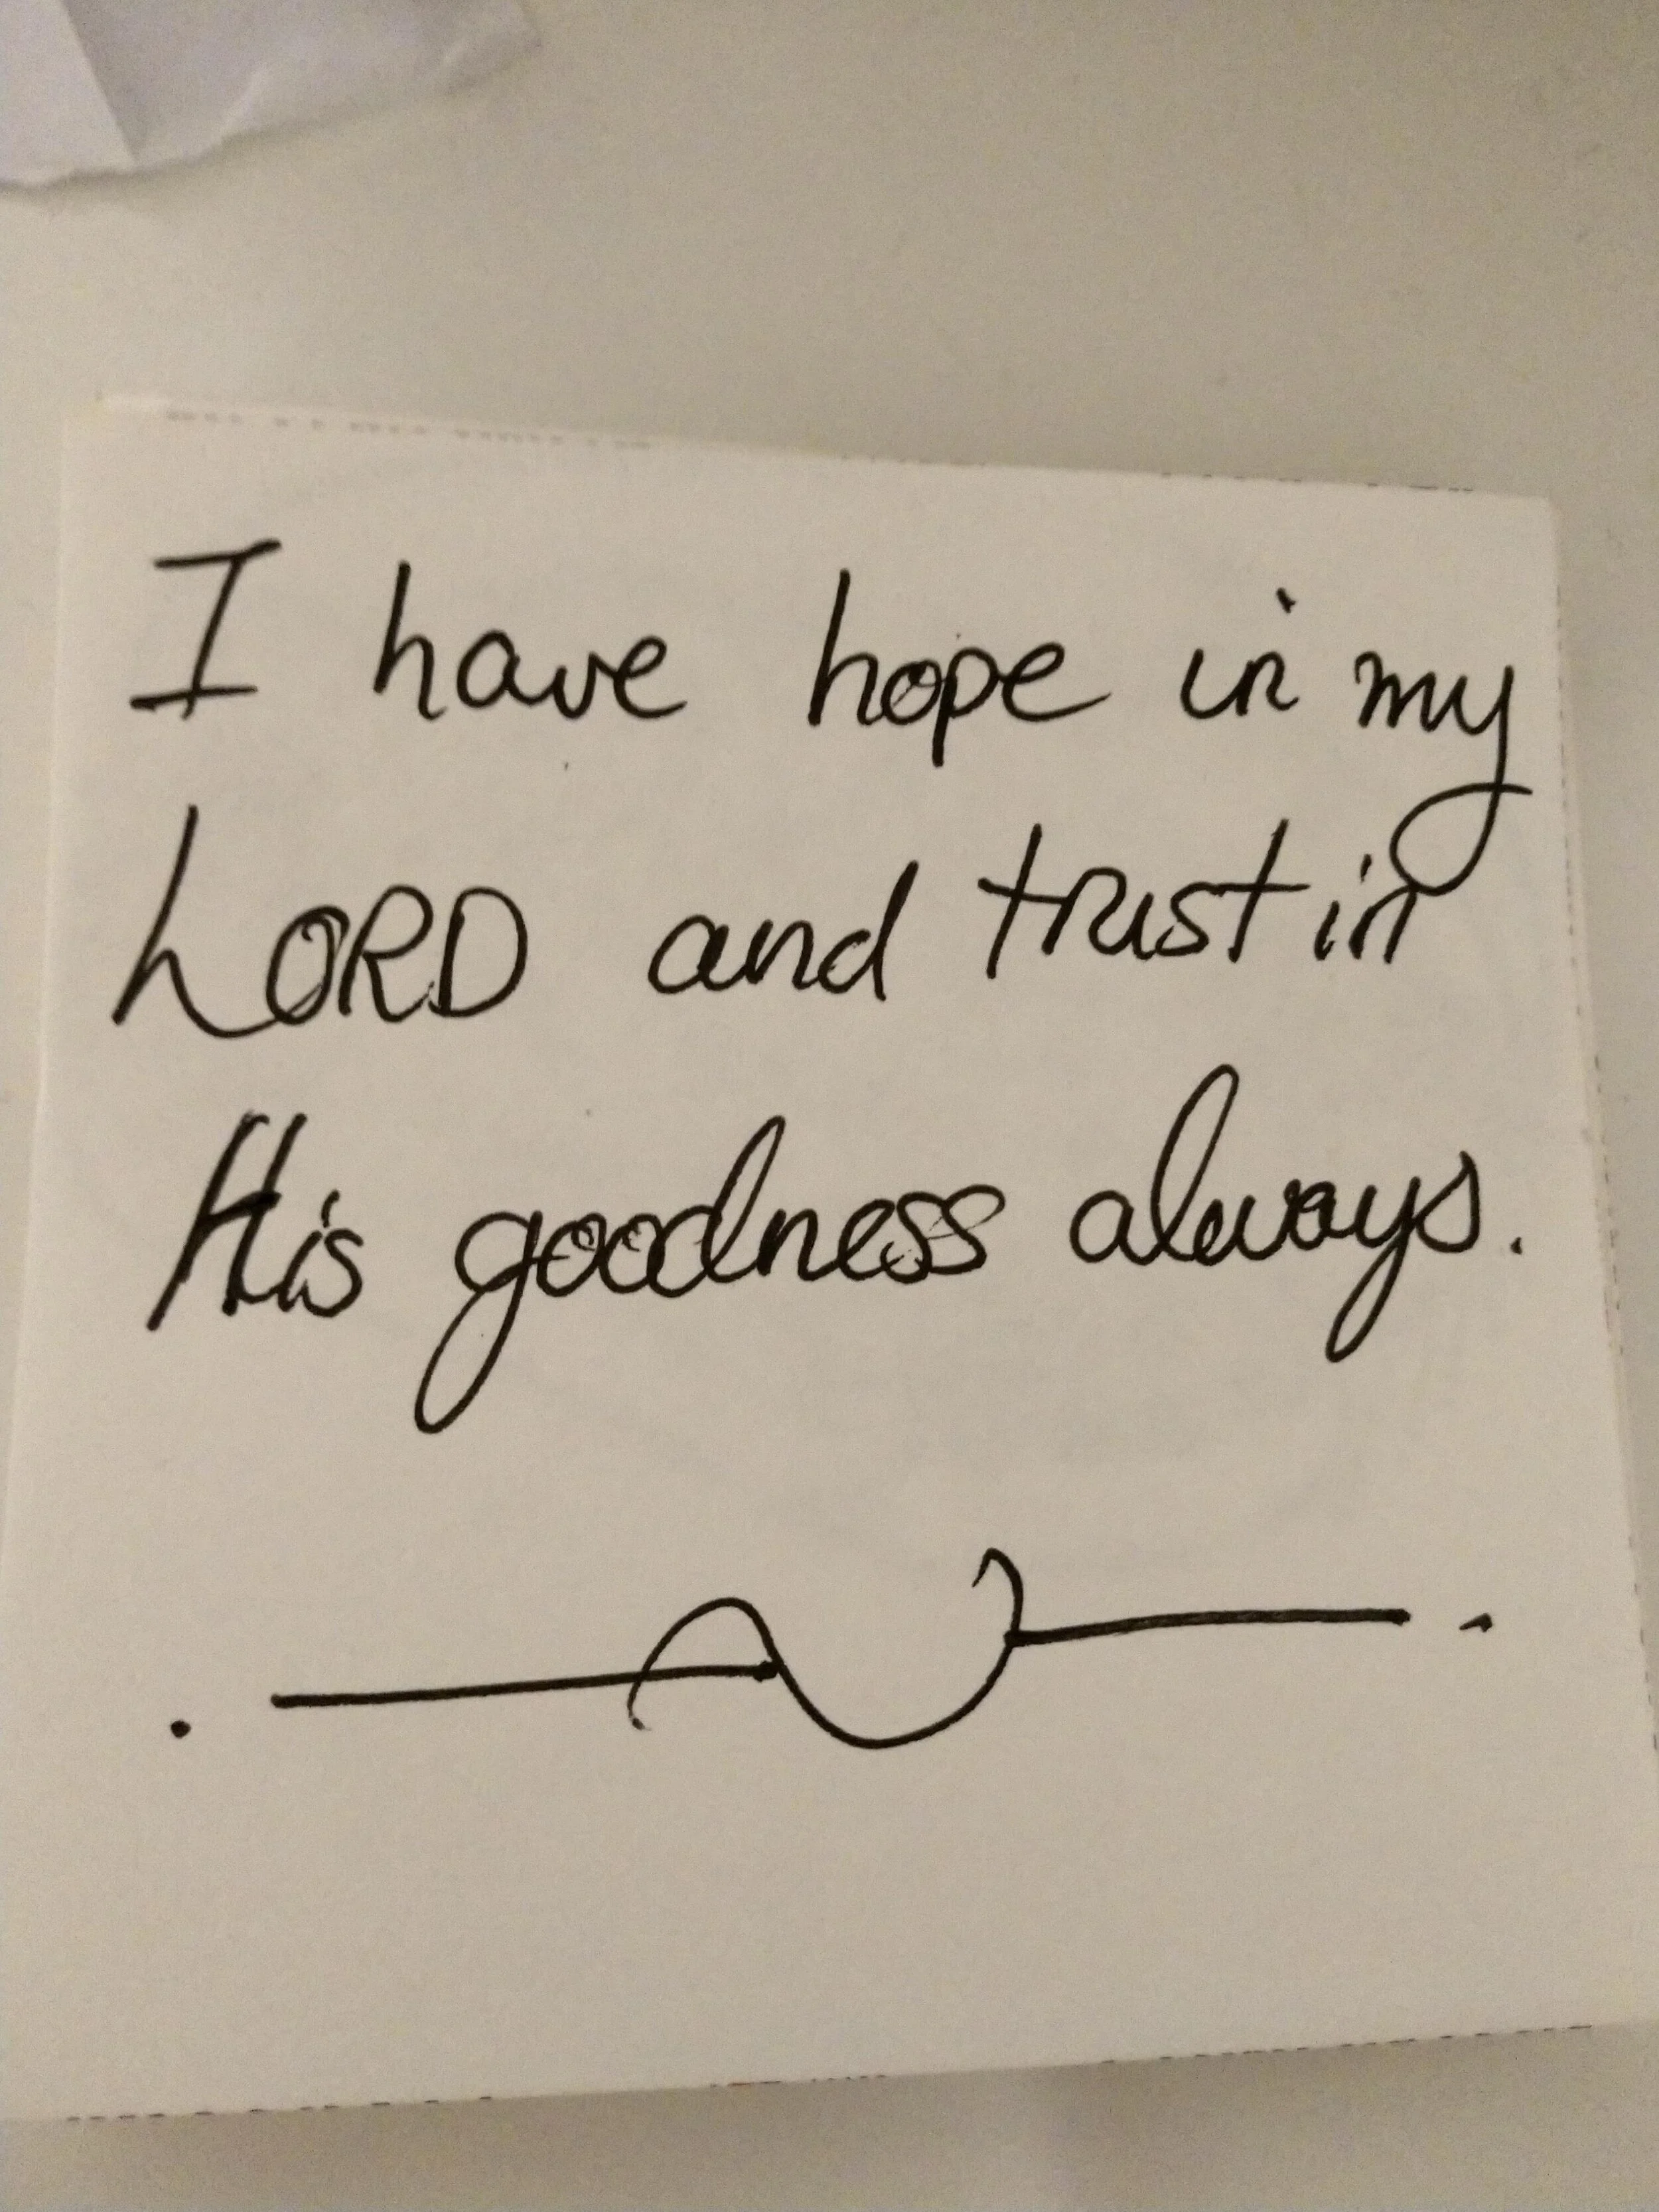 I have hope in my
LORD and trust in
His goodness always.